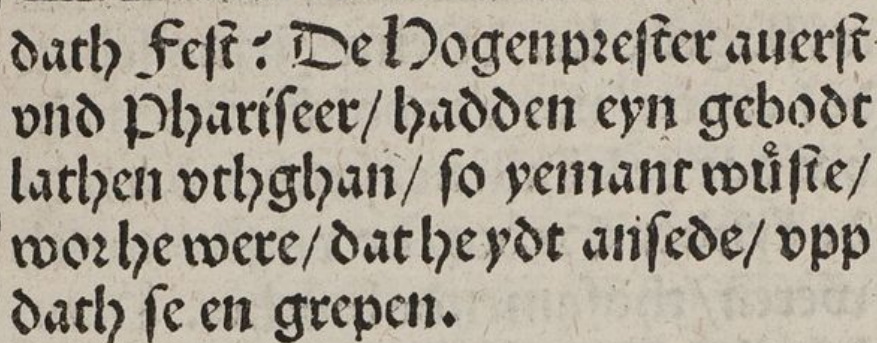 dath Feſt? De Hogenpꝛeſter auerſt
vnd Phariſeer/ hadden eyn gebodt
lathen vthghan/ ſo yemant wuͤſte/
woꝛ he were/ dat he ydt anſede/ vpp
dath ſe en grepen.